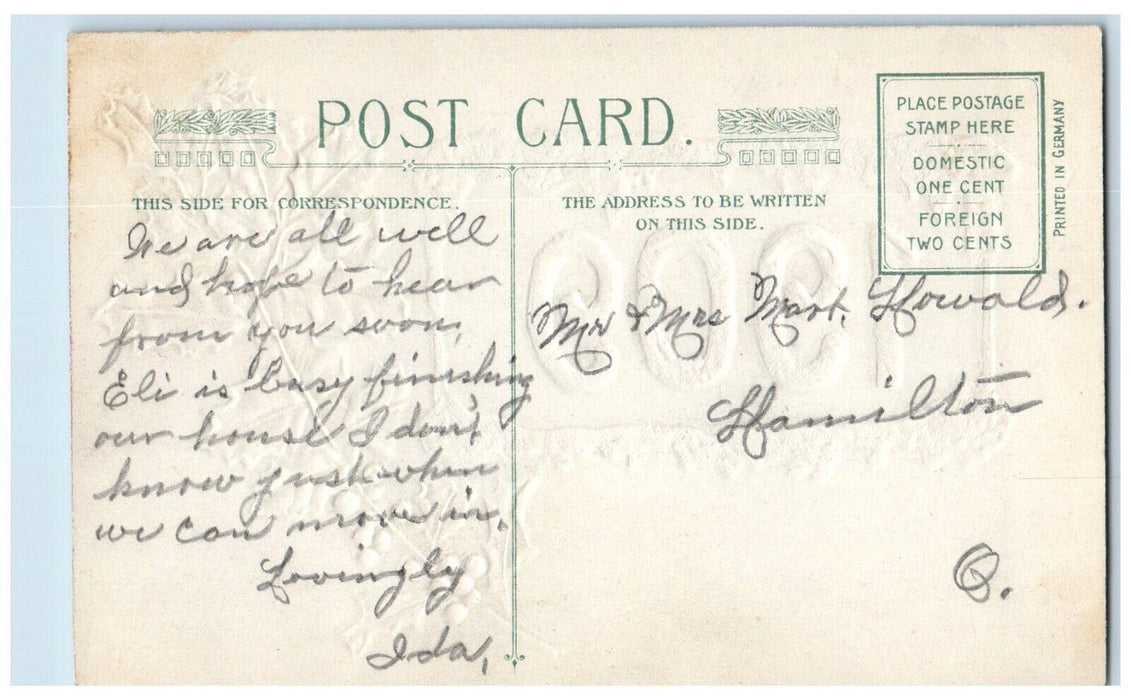 POST CARD.
PLACE POSTAGE
STAMP HERE
DOMESTIC
ONE CENT
FOREIGN
TWO CENTS
PRINTED IN GERMANY
THIS SIDE FOR CORRESPONDENCE.
We are all well
and hope to hear
from you soon.
Eli is busy finishing
our house I don't
know just when
we can move in.
Lovingly
Ida.
THE ADDRESS TO BE WRITTEN
ON THIS SIDE.
Mr & Mrs Mart. Howald.
Hamilton
O.